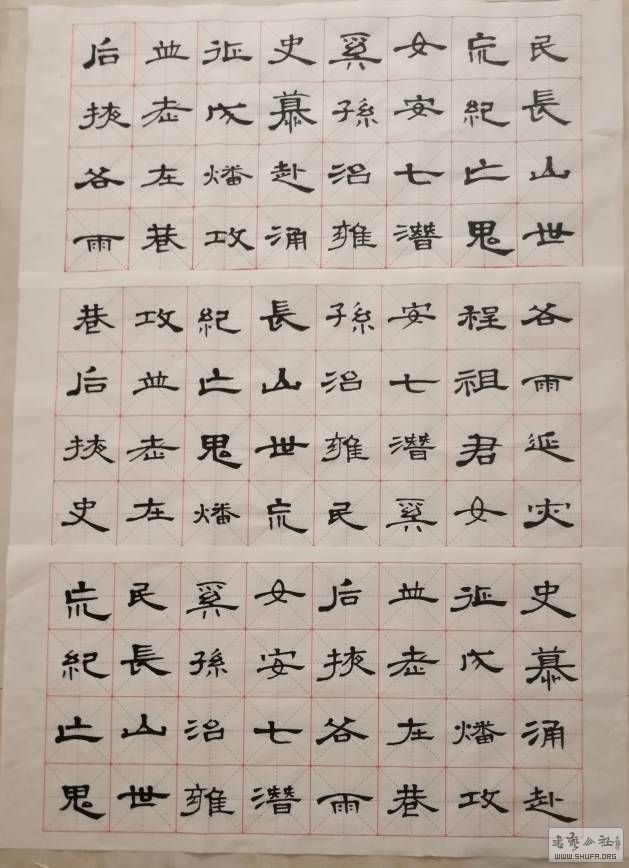 民長山世
荒紀亡鬼
女安七潛
奚孫治雍
史慕赴涌
征戊燔攻
並老在巷
后挾各雨
各雨延灾
程祖君女
安七潛奚
孫治雍民
長山世荒
紀亡鬼燔
攻並老在
巷后挾史
史慕涌赴
征戊燔攻
並老在巷
后挾各雨
女安七潛
奚孫治雍
民長山世
荒紀亡鬼
書藝公社
WWW.SHUFA.ORG